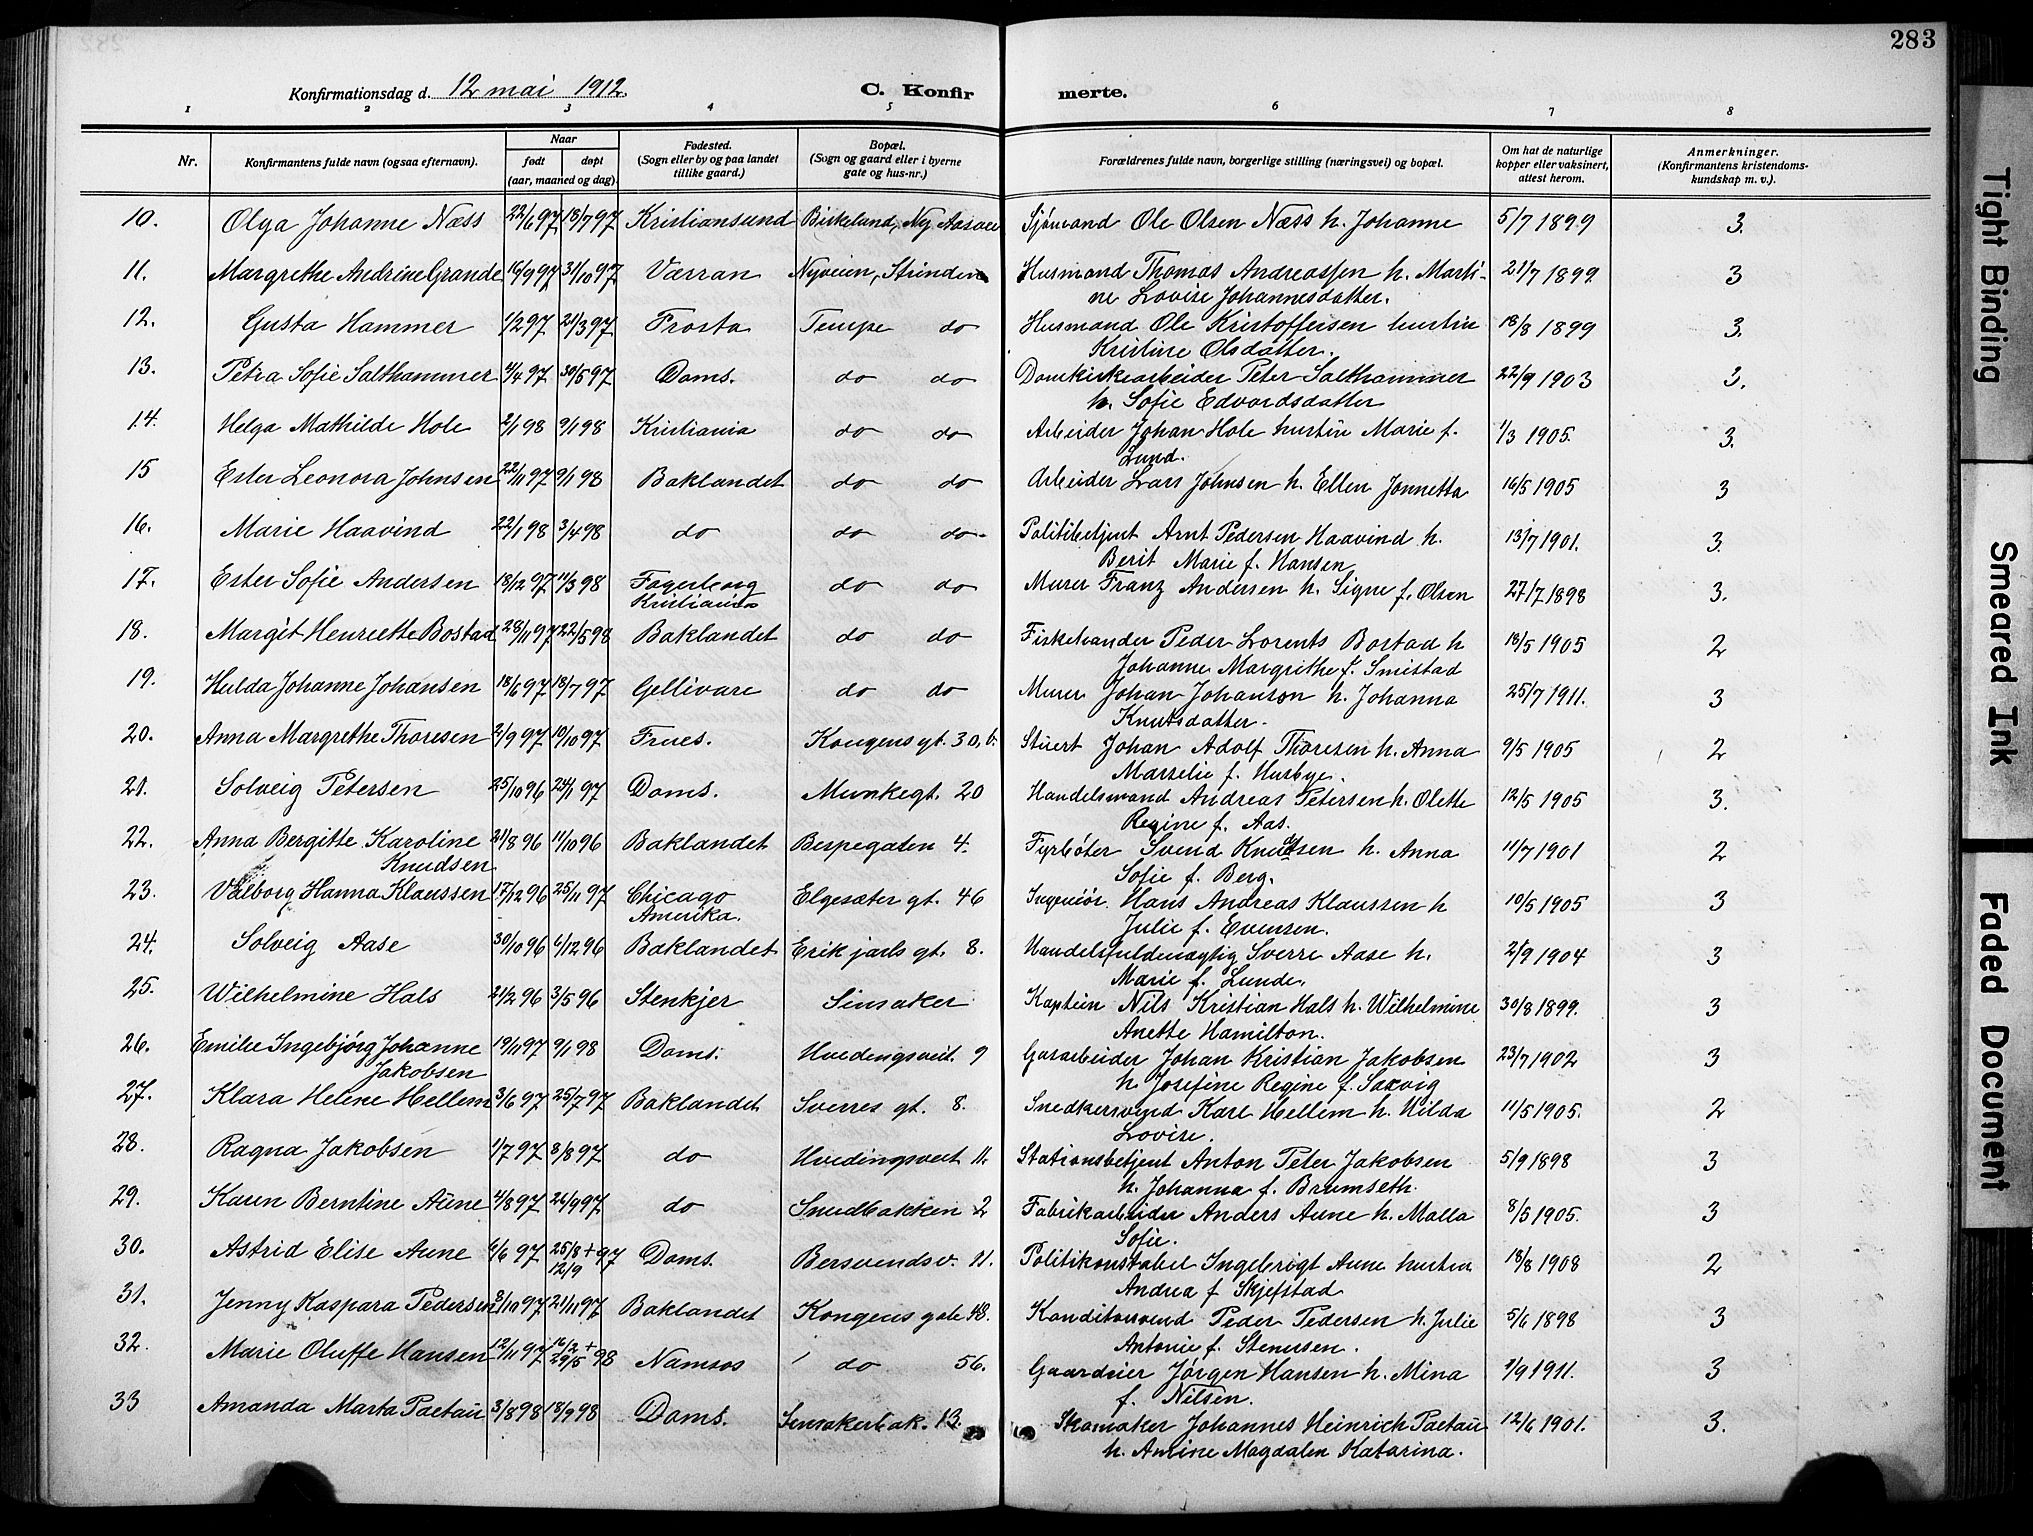 283
Konfirmationsdag d. 12 mai 1912.
C. Konfirmerte.
1 2 3 4 5 6 7 8
Nr.
Konfirmantens fulde navn (ogsaa efternavn).
Naar
født døpt
(aar, maaned og dag).
Fødested.
(Sogn eller by og paa landet
tillike gaard.)
Bopæl.
(Sogn og gaard eller i byerne
gate og hus-nr.)
Forældrenes fulde navn, borgerlige stilling (næringsvei) og bopæl.
Om hat de naturlige
kopper eller vaksinert,
attest herom.
Anmerkninger.
(Konfirmantens kristendoms-
kundskap m. v.).
10. Olga Johanne Næss 22/6 97 18/7 97 Kristiansund Birkelund, Ny Sjømand Ole Olsen Næss h. Johanne 5/7 1899 3.
11. Margrethe Andrine Grande 16/9 97 31/10 97 Værran Nyveien, Strinden Husmand Thomas Andreassen h. Marti- 21/7 1899. 3
ne Lovise Johannesdatter.
12. Gusta Hammer 1/2 97 21/3 97 Frosta Tempe do Husmand Ole Kristoffersen hustru 18/8 1899 3.
Kristine Olsdatter.
13. Petra Sofie Salthammer 2/4 97 30/5 97 Doms. do do Domkirkearbeider Peter Salthammer 22/9 1903 3.
h. Sofie Edvardsdatter
14. Helga Mathilde Hole 2/1 98 9/1 98 Kristiania do do Arbeider Johan Hole hustru Marie f. 1/3 1905. 3.
Lund.
15 Ester Leonora Johnsen 22/11 97 9/1 98 Baklandet do do Arbeider Lars Johnsen h. Ellen Jonnetta 16/5 1905 3
16. Marie Haavind 22/1 98 3/4 98 do do do Politibetjent Arnt Pedersen Haavind h. 13/7 1901. 3.
Berit Marie f. Hansen
17. Ester Sofie Andersen 18/12 97 11/3 98 Fagerborg do do Murer Franz Andersen h. Signe f. Olsen 27/7 1898 3.
Kristiania
18. Margit Henriette Bostad 28/11 97 22/5 98 Baklandet do do Fiskehandler Peder Lorents Bostad h 18/5 1905 2
Johanne Margrethe f. Smistad
19. Hulda Johanne Johansen 18/6 97 18/7 97 Gellivare do do Murer Johan Johanson h. Johanna 25/7 1911. 3
Knutsdatter.
20. Anna Margrethe Thoresen 2/9 97 10/10 97 Frues. Kongens gt. 30, b. Stuert Johan Adolf Thoresen h. Anna 9/5 1905 2
Marselie f. Husbye.
21. Solveig Petersen 25/10 96 24/1 97 Doms. Munkegt. 20 Handelsmand Andreas Petersen h. Olette 12/5 1905 3.
Regine f. Aas.
22. Anna Bergitte Karoline 21/8 96 11/10 96 Baklandet Bispegaten 4. Fyrbøter Svend Knudsen h. Anna 11/7 1901 2
Knudsen Sofie f. Berg.
23. Valborg Hanna Klaussen 17/12 96 25/11 97 Chicago Elgesæter gt. 46 Ingeniør. Hans Andreas Klaussen h 10/5 1905 3
Amerika. Julie f. Evensen.
24. Solveig Aase 30/10 96 6/12 96 Baklandet Erik jarls gt. 8. Handelsfuldmægtig Sverre Aase h. 2/9 1904 3
Marie f. Lunde.
25. Wilhelmine Hals 21/2 96 3/5 96 Stenkjer Sinsaker Kaptein Nils Kristian Hals h. Wilhelmine 30/8 1899. 3
Anette Hamilton.
26. Emilie Ingebjørg Johanne 19/11 97 9/1 98 Doms. Hvedingsveit. 9 Gasarbeider Johan Kristian Jakobsen 23/7 1902 3
Jakobsen h Josefine Regine f. Saxvig
27. Klara Helene Hellem 3/6 97 25/7 97 Baklandet Sverres gt. 8. Snedkersvend Karl Hellem h. Hilda 11/5 1905. 2
Lovise.
28. Ragna Jakobsen 1/7 97 8/8 97 do Hvedingsveit 11. Stationsbetjent Anton Peter Jakobsen 5/9 1898 3
h. Johanna f. Brumseth.
29. Karen Berntine Aune 4/8 97 26/9 97 do Smedbakken 2 Fabrikarbeider Anders Aune h. Malla 8/5 1905. 3
Sofie.
30. Astrid Elise Aune 6/6 97 25/8 + 97 Doms. Bersvendsv. 11. Politikonstabel Ingebrigt Aune hustru 18/8 1908 2
12/9 Andrea f Skjefstad
31. Jenny Kaspara Pedersen 3/10 97 21/11 97 Baklandet Kongens gate 48. Konditorsvend Peder Pedersen h. Julie 5/6 1898 3
Antonie f. Stenersen.
32. Marie Oluffe Hansen 12/11 97 16/2 + 98 Namsos do 56. Gaardeier Jørgen Hansen h. Mina 1/9 1911. 3
29/5 f. Nilsen.
33 Amanda Marta Paetau 3/8 98 18/9 98 Doms. Sinsakerbak. 13. Skomaker Johannes Heinrich Paetau 12/6 1901. 3.
h. Amine Magdalen Katarina.
Tight Binding
Smeared Ink
Faded Document